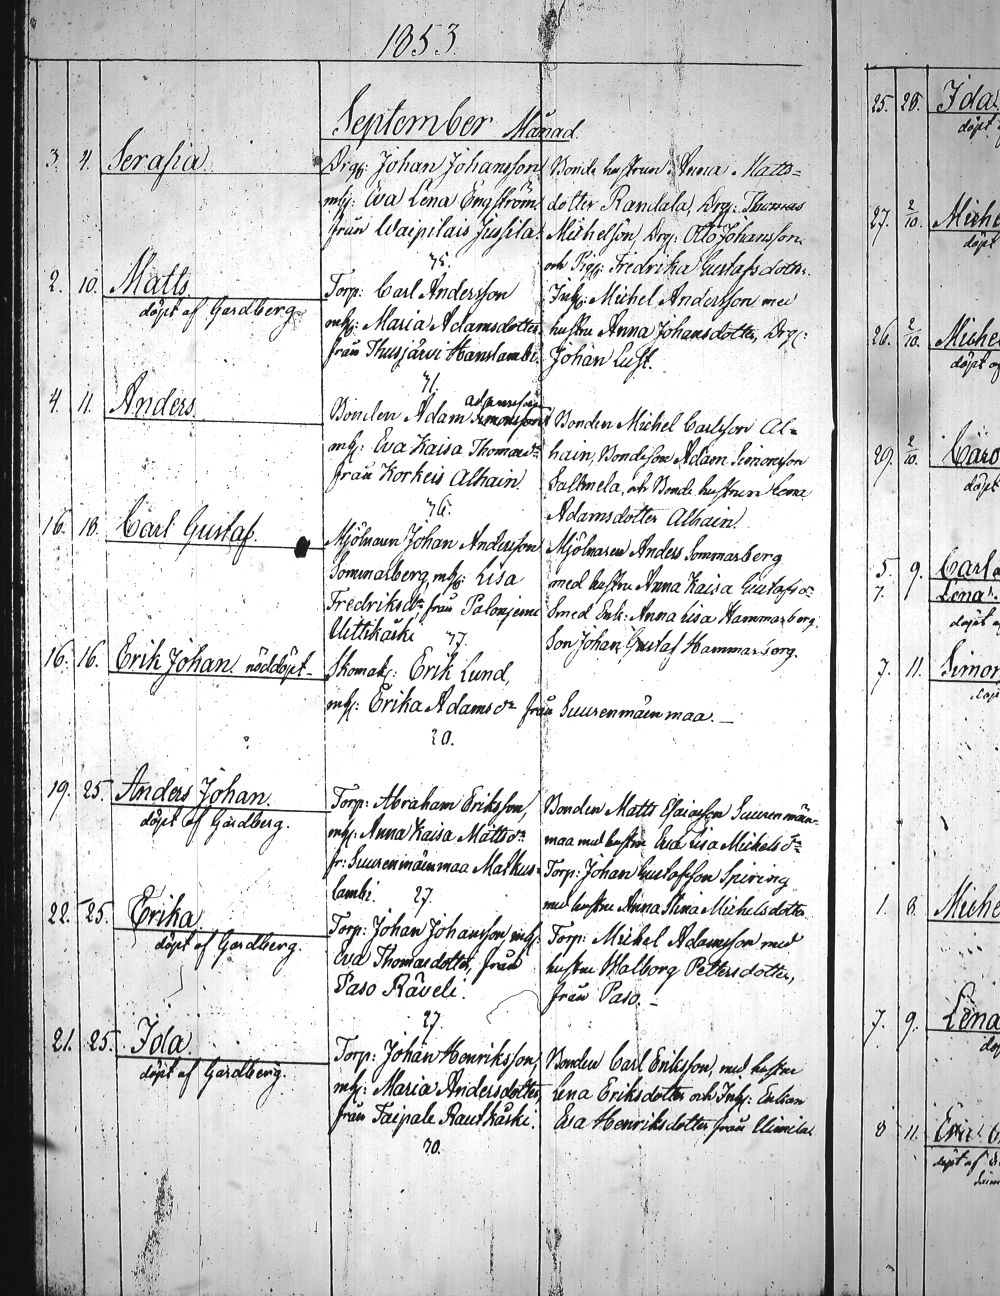 1853.
September Månad.
3. 4. Serafia.
Drg: Johan Johansson
mh: Eva Lena Engström
från Waipilais Jussila.
Bonde hustrun Anna Matts=
dotter Randala, Drg: Thomas
Michelson, Drg: Otto Johansson
och Pig: Fredrika Gustafsdotter.
2. 10. Matts
döpt af Gardberg.
Torp: Carl Andersson
mh: Maria Adamsdotter
från Thusjärvi Hanslambi.
Inh: Michel Andersson med
hustru Anna Johansdotter, Drg:
Johan Luft.
4. 11. Anders.
41.
Bonden Adam Simonsson
mh: Eva Kaisa Thomasdr
från Korkeis Alhain.
Bonden Michel Carlsson Al=
hain, Bondeson Adam Simonsson
Saltmela, och Bonde hustrun Lena
Adamsdotter Alhain.
16. 18. Carl Gustaf.
Mjölnaren Johan Andersson
Sommarberg, mh: Lisa
Fredriksdr från Palonjemi
Uittikäski
Mjölnaren Anders Sommarberg
med hustru Anna Kaisa Gustafsdr
Smed Enk: Anna Lisa Hammarberg,
Son Johan Gustaf Hammarberg.
16. 16. Erik Johan. nöddöpt
Skomak: Erik Lund,
mh: Erika Adamsdr från Suurenmäenmaa. –
20.
19. 25. Anders Johan.
döpt af Gardberg.
Torp: Abraham Eriksson,
mh: Anna Kaisa Mattsdr
fr: Suurenmäenmaa Matkus=
lambi. 27.
Bonden Matts Esaiasson Suurenmäen=
maa med hustru Eva Lisa Michelsdr
Torp: Johan Gustafsson Spiring
med hustru Anna Stina Michelsdotter
22. 25. Erika
döpt af Gardberg.
Torp: Johan Johansson mh:
Eva Thomasdotter, från
Paso Räveli.
27.
Torp: Michel Adamsson med
hustru Walborg Pettersdotter,
från Paso. –
21. 25. Ida.
döpt af Gardberg.
Torp: Johan Henriksson,
mh: Maria Andersdotter
från Taipale Rautkäski.
30.
Bonden Carl Eriksson, med hustru
Lena Eriksdotter och Inh: Enkan
Esa Henriksdotter från
25. 28. Ida.
döpt
27. 2/10.
döpt
26. 2/10. Michel
döpt af
29. 2/10.
döpt
5. 9. Carl
7. Lena
döpt
7. 11. Simon
1. 8.
7. 9. Lena
8 11.
döpt af